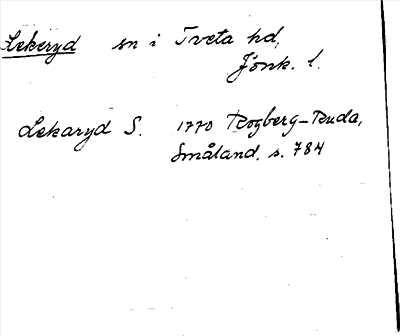 Lekeryd sn i Tveta hd,
Jönk. l.
Lekaryd S. 1770 Rogberg-Ruda,
Småland. s. 784